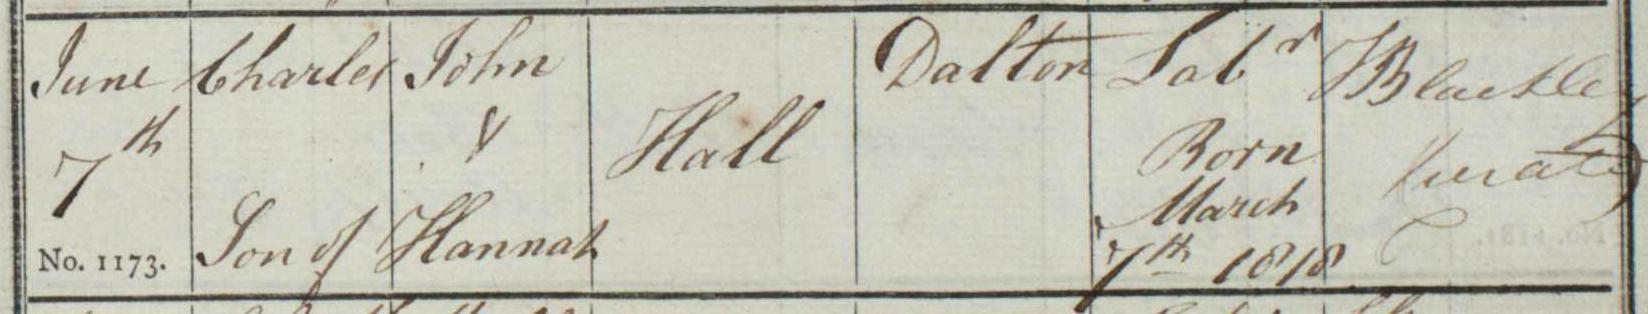 June
7th
No. 1173.
Charles
Son of
John
&
Hannah
Hall
Dalton
Labr
Born
March
7th 1818
Curate